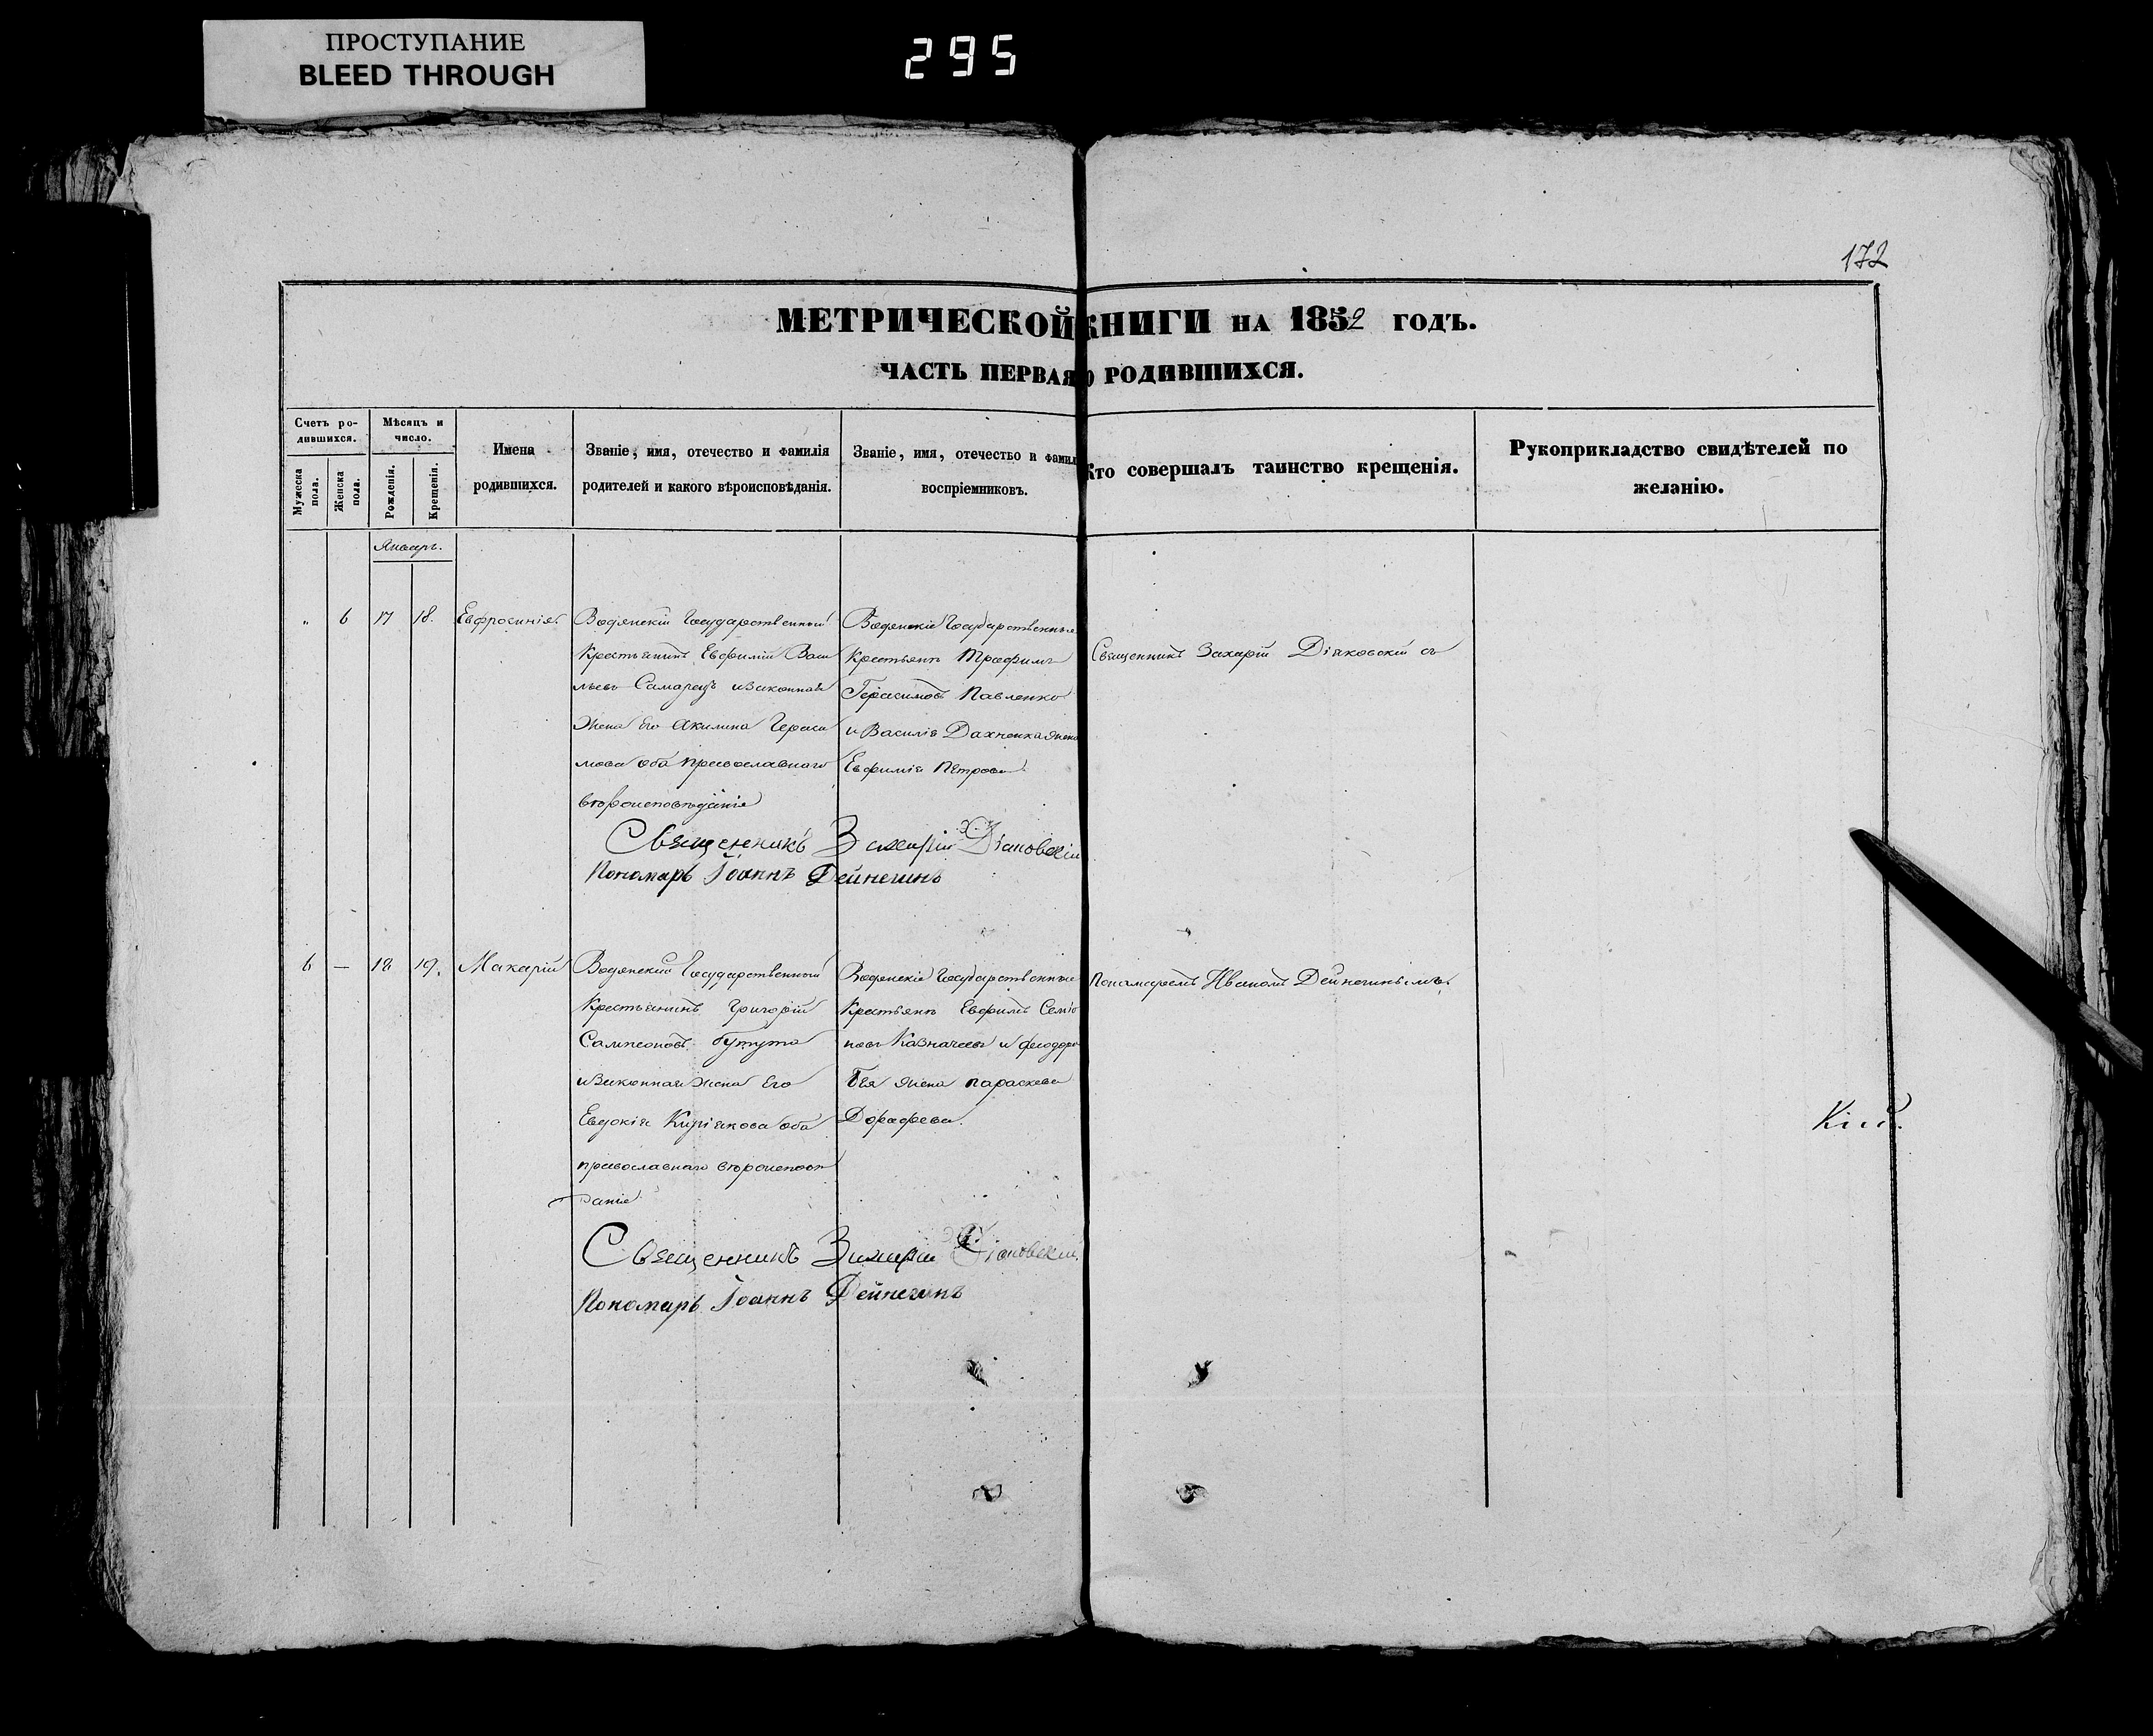 ПРОСТУПАНИЕ
BLEED THROUGH
295
172
МЕТРИЧЕСКОЙ КНИГИ НА 1852 ГОДЪ.
ЧАСТЬ ПЕРВАЯ О РОДИВШИХСЯ.
Счетъ ро-
дившихся.
Мужеска пола.
Женска пола.
Мѣсяцъ и
число.
Рожденія.
Крещенія.
Имена
родившихся.
Званіе, имя, отечество и фамилія
родителей и какого вѣроисповѣданія.
Званіе, имя, отечество и фамил
воспріемниковъ.
Кто совершалъ таинство крещенія.
Рукоприкладство свидѣтелей по
желанію.
Январь.
„ 6 17 18. Евфросинія.
Водянскій Государственный
Крестьянинъ Евфимій Васи
льевъ Самарецъ изаконная
Жена Его Акилина Гераси
мова оба Православнаго
вѣроисповѣданія
Водянскіе Государственные
Крестьяне Трофимъ
Герасимовъ Павленко
и Василія Дахненка жена
Евфимія Петрова.
Священникъ Захарій Діяковскій съ
Священникъ Захарій Діяковскій
Пономарь Іоаннъ Дейнегинъ
6 — 18 19. Макарій
Водянский Государственный
Крестьянинъ Григорій
Сампсоновъ
изаконная жена Его
Евдокія Киріякова оба
православнаго вѣроисповѣ
данія
Водянскіе Государственные
Крестьяне Евфимъ Семіо
новъ Казначеевъ и Феодора
жена параскева
Дорофеева.
пономаремъ Иваномъ Дейнегинымъ.
Священникъ Захарій Діяковскій
Пономарь Іоаннъ Дейнегинъ